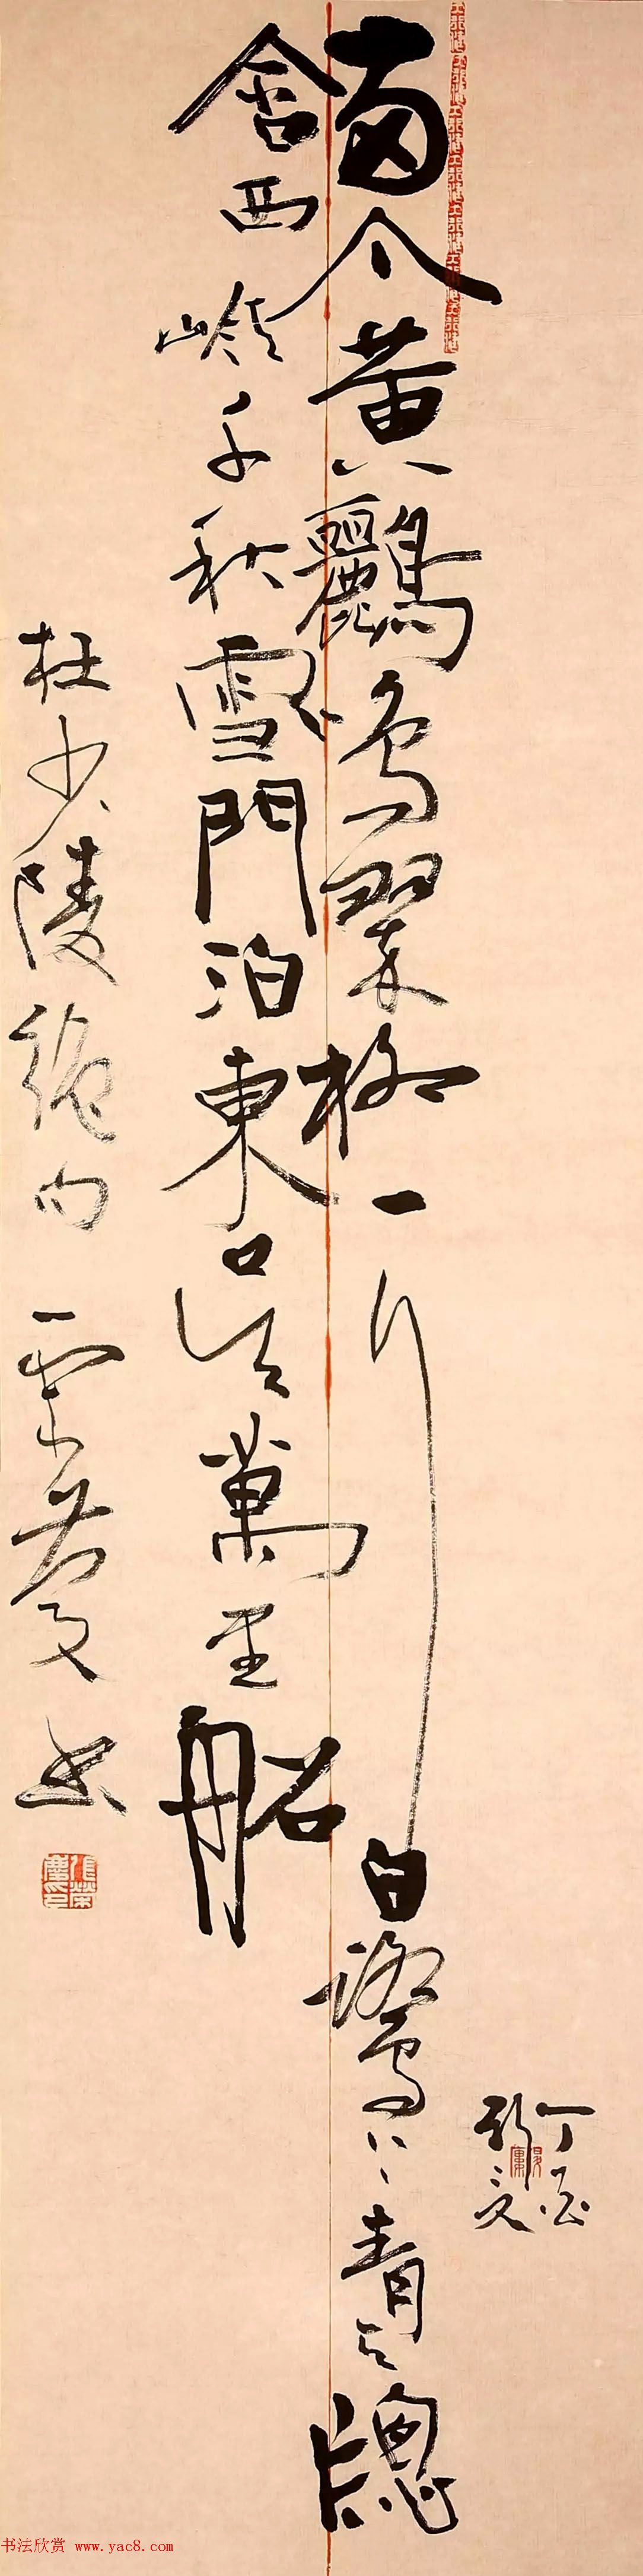 兩个黃鸝鳴翠柳一行白鷺上青天牕
含西嶺千秋雪門泊東吳萬里船
杜少陵絕句 慶書
丁酉
張榮慶印
书法欣赏 www.yac8.com